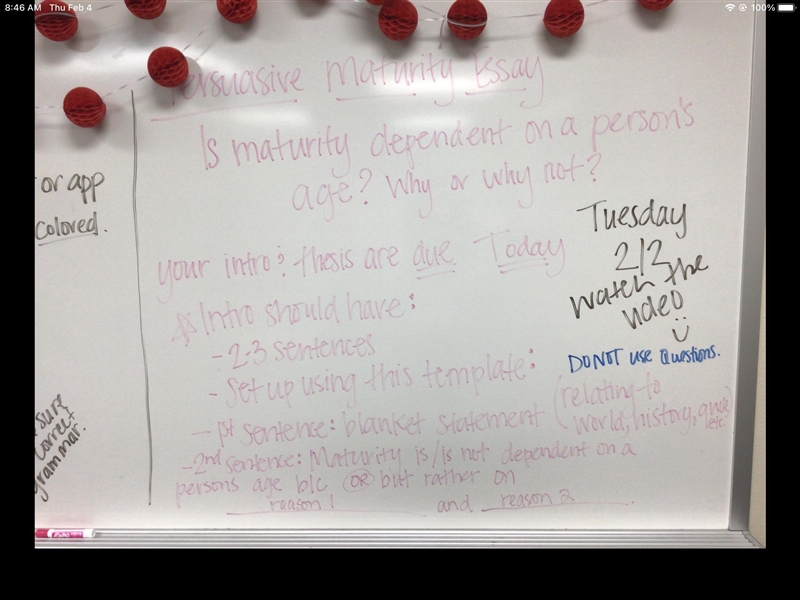 8:46 AM Thu Feb 4
100%
Persuasive Maturity Essay
Is maturity dependent on a person's
age? Why or why not?
your intro & thesis are due Today
Intro should have:
- 2-3 sentences
- Set up using this template:
- 1st sentence: blanket statement (relating to
world, history, quote, etc.)
- 2nd sentence: Maturity is/is not dependent on a
persons age b/c OR but rather on
reason 1 and reason 2.
Tuesday
2/2
Watch the
video
DO NOT use Questions.
or app
colored.
sure
correct
grammar.